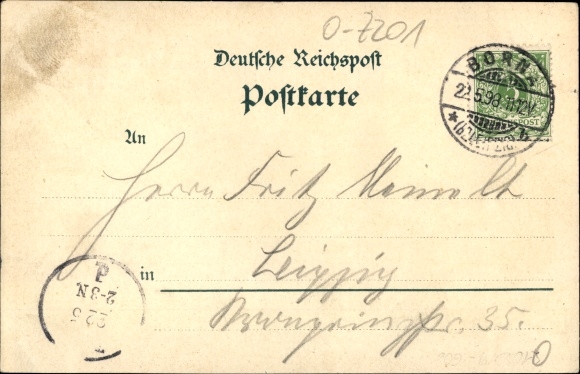 O-7201
Deutsche Reichspost
Postkarte
BORNA
22.5.98.11-12V.
*(BZ. LEIPZIG) a
POST
An
Herrn Fritz
in
Leipzig
35.
2-3N
22 5